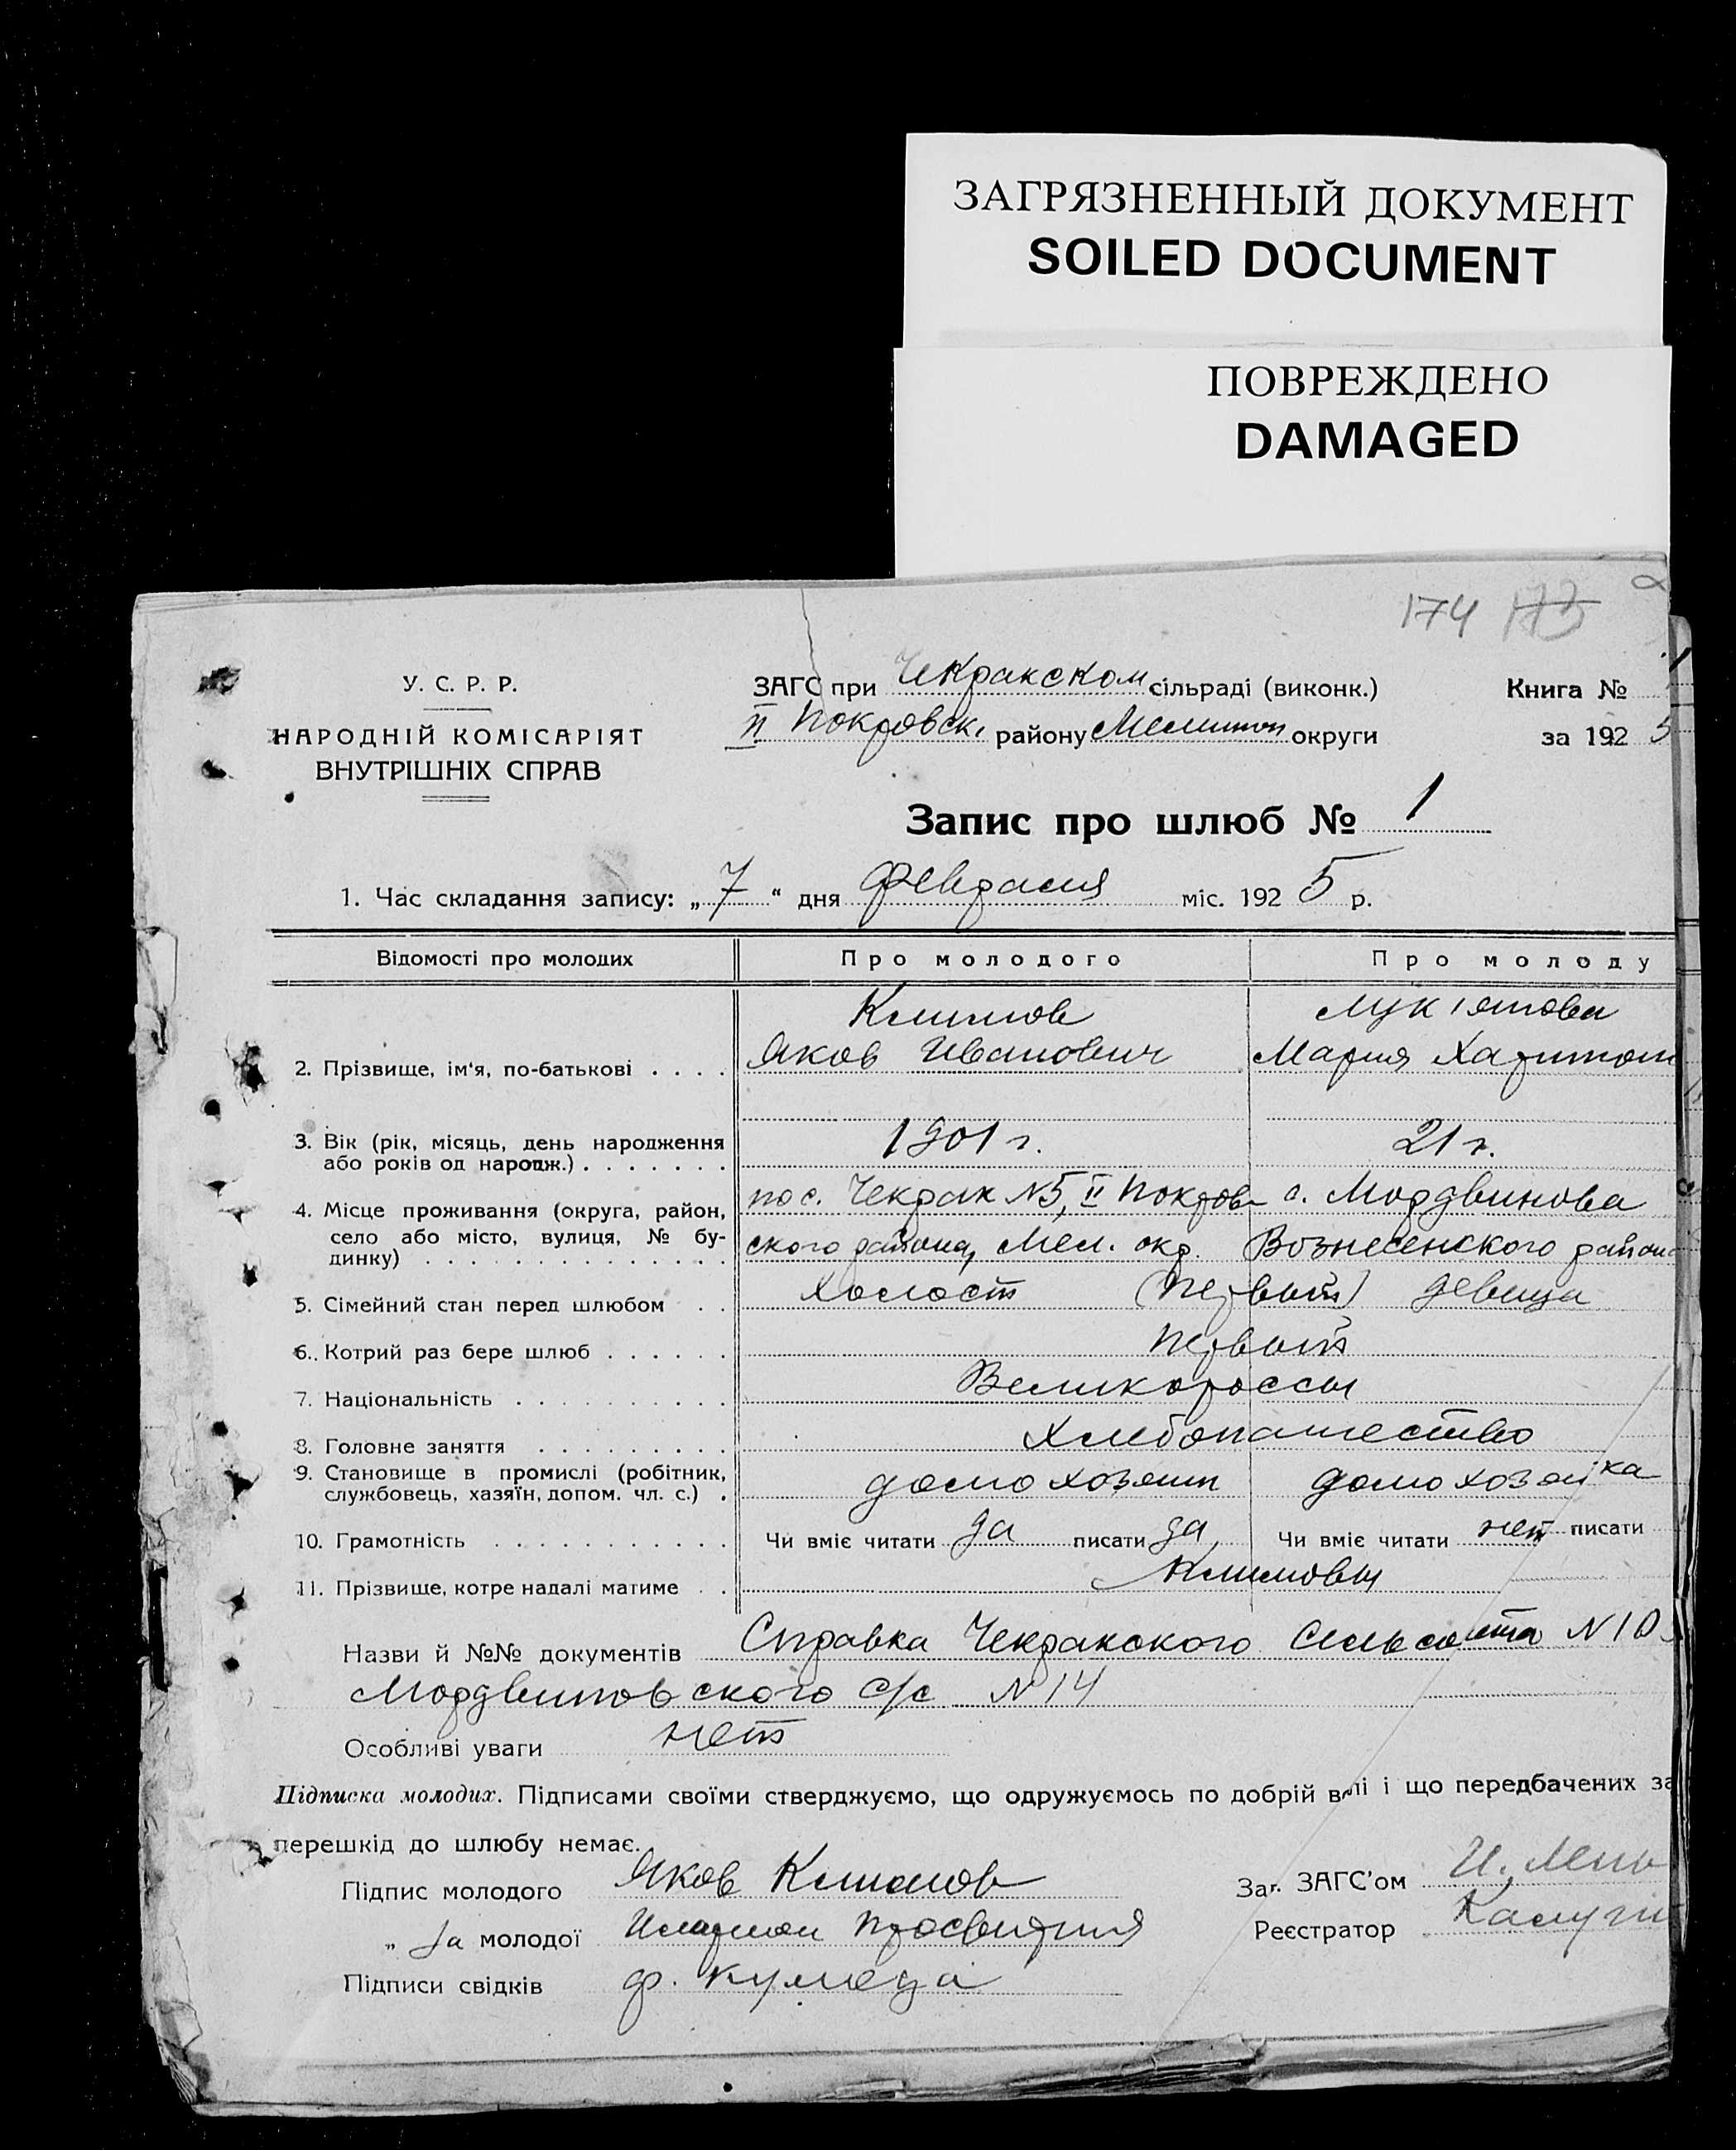 ЗАГРЯЗНЕННЫЙ ДОКУМЕНТ
SOILED DOCUMENT
ПОВРЕЖДЕНО
DAMAGED
174 173
У. С. Р. Р.
НАРОДНІЙ КОМІСАРІЯТ
ВНУТРІШНІХ СПРАВ
ЗАГС при Чекракском сільраді (виконк.)
II Покровск. району Мелитоп округи
Книга № 1
за 1925
Запис про шлюб № 1
1. Час складання запису: „7“ дня февраля міс. 1925 р.
Відомості про молодих Про молодого Про молоду
Климов
Яков Иванович
Мария Харитон
2. Прізвище, ім'я, по-батькові . . . .
3. Вік (рік, місяць, день народження
або років од народж.) . . . . . . .
1901 г. 21 г.
4. Місце проживання (округа, район,
село або місто, вулиця, № бу-
динку) . . . . . . . . . . . . . .
пос. Чекрак N5, II Покров с. Мордвинова
ского района, Мел. окр. Вознесенского района
5. Сімейний стан перед шлюбом . . Холост (первый) девица
6. Котрий раз бере шлюб . . . . . . первый
7. Національність . . . . . . . . . . Великороссы
8. Головне заняття . . . . . . . . . Хлебопашество
9. Становище в промислі (робітник,
службовець, хазяїн, допом. чл. с.) .
домохозяин домохозяйка
10. Грамотність . . . . . . . . . . . Чи вміє читати да писати да, Чи вміє читати нет писати
11. Прізвище, котре надалі матиме . . Климовы
Назви й №№ документів Справка Чекракского Сельсовета N 10
Мордвиновского с/с N 14
Особливі уваги нет
Підписка молодих. Підписами своїми стверджуємо, що одружуємось по добрій волі і що передбачених за
перешкід до шлюбу немає.
Підпис молодого Яков Климов
„ За молодої Иларион Просвирня
Підписи свідків ф. Кулеша
Заг. ЗАГС'ом И.
Реєстратор Калугин